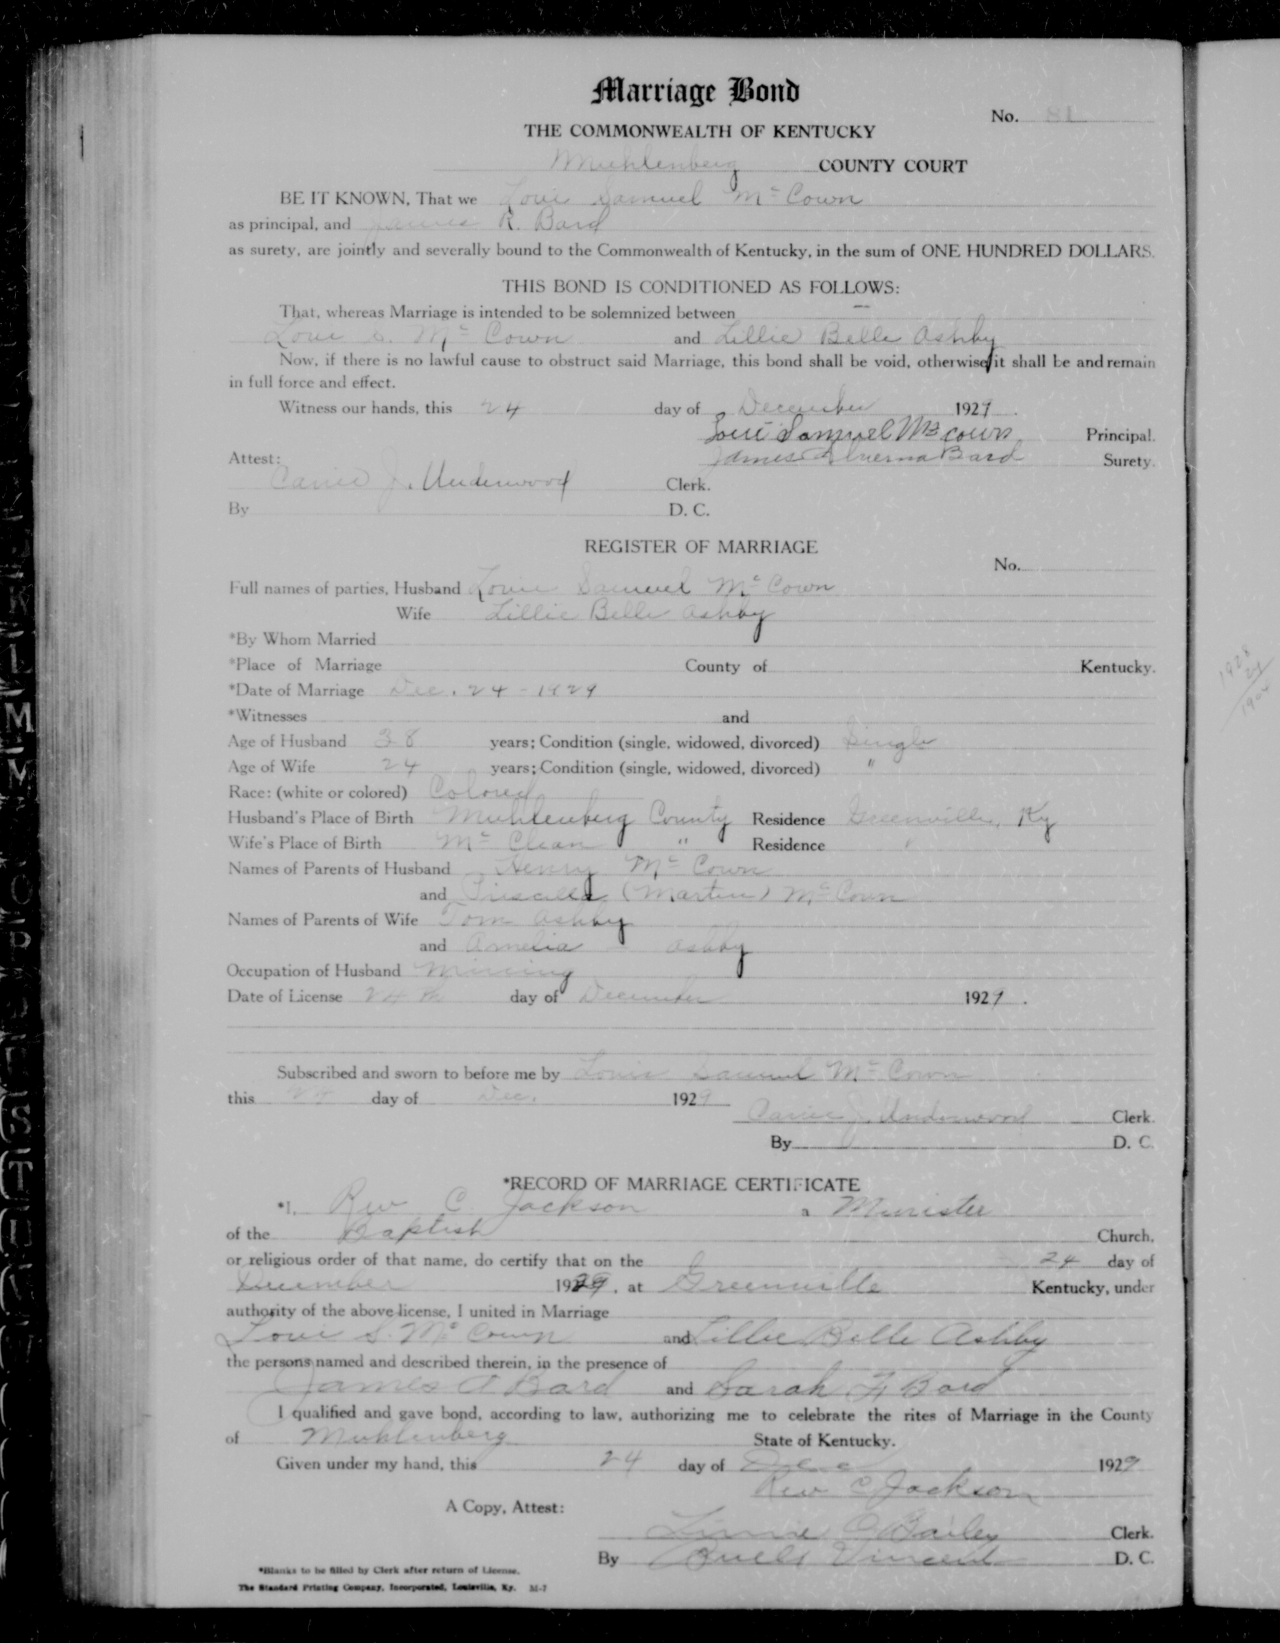 Marriage Bond
No. 81
THE COMMONWEALTH OF KENTUCKY
Muhlenberg COUNTY COURT
BE IT KNOWN, That we Louie Samuel Mc Cown
as principal, and James R. Bard
as surety, are jointly and severally bound to the Commonwealth of Kentucky, in the sum of ONE HUNDRED DOLLARS.
THIS BOND IS CONDITIONED AS FOLLOWS:
That, whereas Marriage is intended to be solemnized between
Louie S. Mc Cown and Lillie Belle Ashby
Now, if there is no lawful cause to obstruct said Marriage, this bond shall be void, otherwise it shall be and remain
in full force and effect.
Witness our hands, this 24 day of December 1929.
Louie Samuel Mc cown Principal.
James Bard Surety.
Attest:
Carrie J. Underwood Clerk.
By D. C.
REGISTER OF MARRIAGE
No.
Full names of parties, Husband Louie Samuel Mc Cown
Wife Lillie Belle Ashby
*By Whom Married
*Place of Marriage County of Kentucky.
*Date of Marriage Dec. 24 - 1929
*Witnesses and
Age of Husband 38 years; Condition (single, widowed, divorced) Single
Age of Wife 24 years; Condition (single, widowed, divorced) "
Race: (white or colored) Colored
Husband's Place of Birth Muhlenberg County Residence Greenville, Ky
Wife's Place of Birth Mc Clean " Residence "
Names of Parents of Husband Henry Mc Cown
and Priscilla (Martin) Mc Cown
Names of Parents of Wife Tom Ashby
and Amelia Ashby
Occupation of Husband Mining
Date of License 24 th day of December 1929.
Subscribed and sworn to before me by Louie Samuel Mc Cown
this 24 day of Dec. 1929
Carrie J. Underwood Clerk.
By D. C.
*RECORD OF MARRIAGE CERTIFICATE
*I, Rev C Jackson a Minister
of the Baptist Church,
or religious order of that name, do certify that on the 24 day of
December 1929, at Greenville Kentucky, under
authority of the above license, I united in Marriage
Louie S. Mc Cown and Lillie Belle Ashby
the persons named and described therein, in the presence of
James A Bard and Sarah F Bard
I qualified and gave bond, according to law, authorizing me to celebrate the rites of Marriage in the County
of Muhlenberg State of Kentucky.
Given under my hand, this 24 day of Dec 1929
Rev C Jackson
A Copy, Attest:
Linnie C Bailey Clerk.
By Buell Vincent D. C.
*Blanks to be filled by Clerk after return of License.
The Standard Printing Company, Incorporated, Louisville, Ky. M-7
1928
24
1904